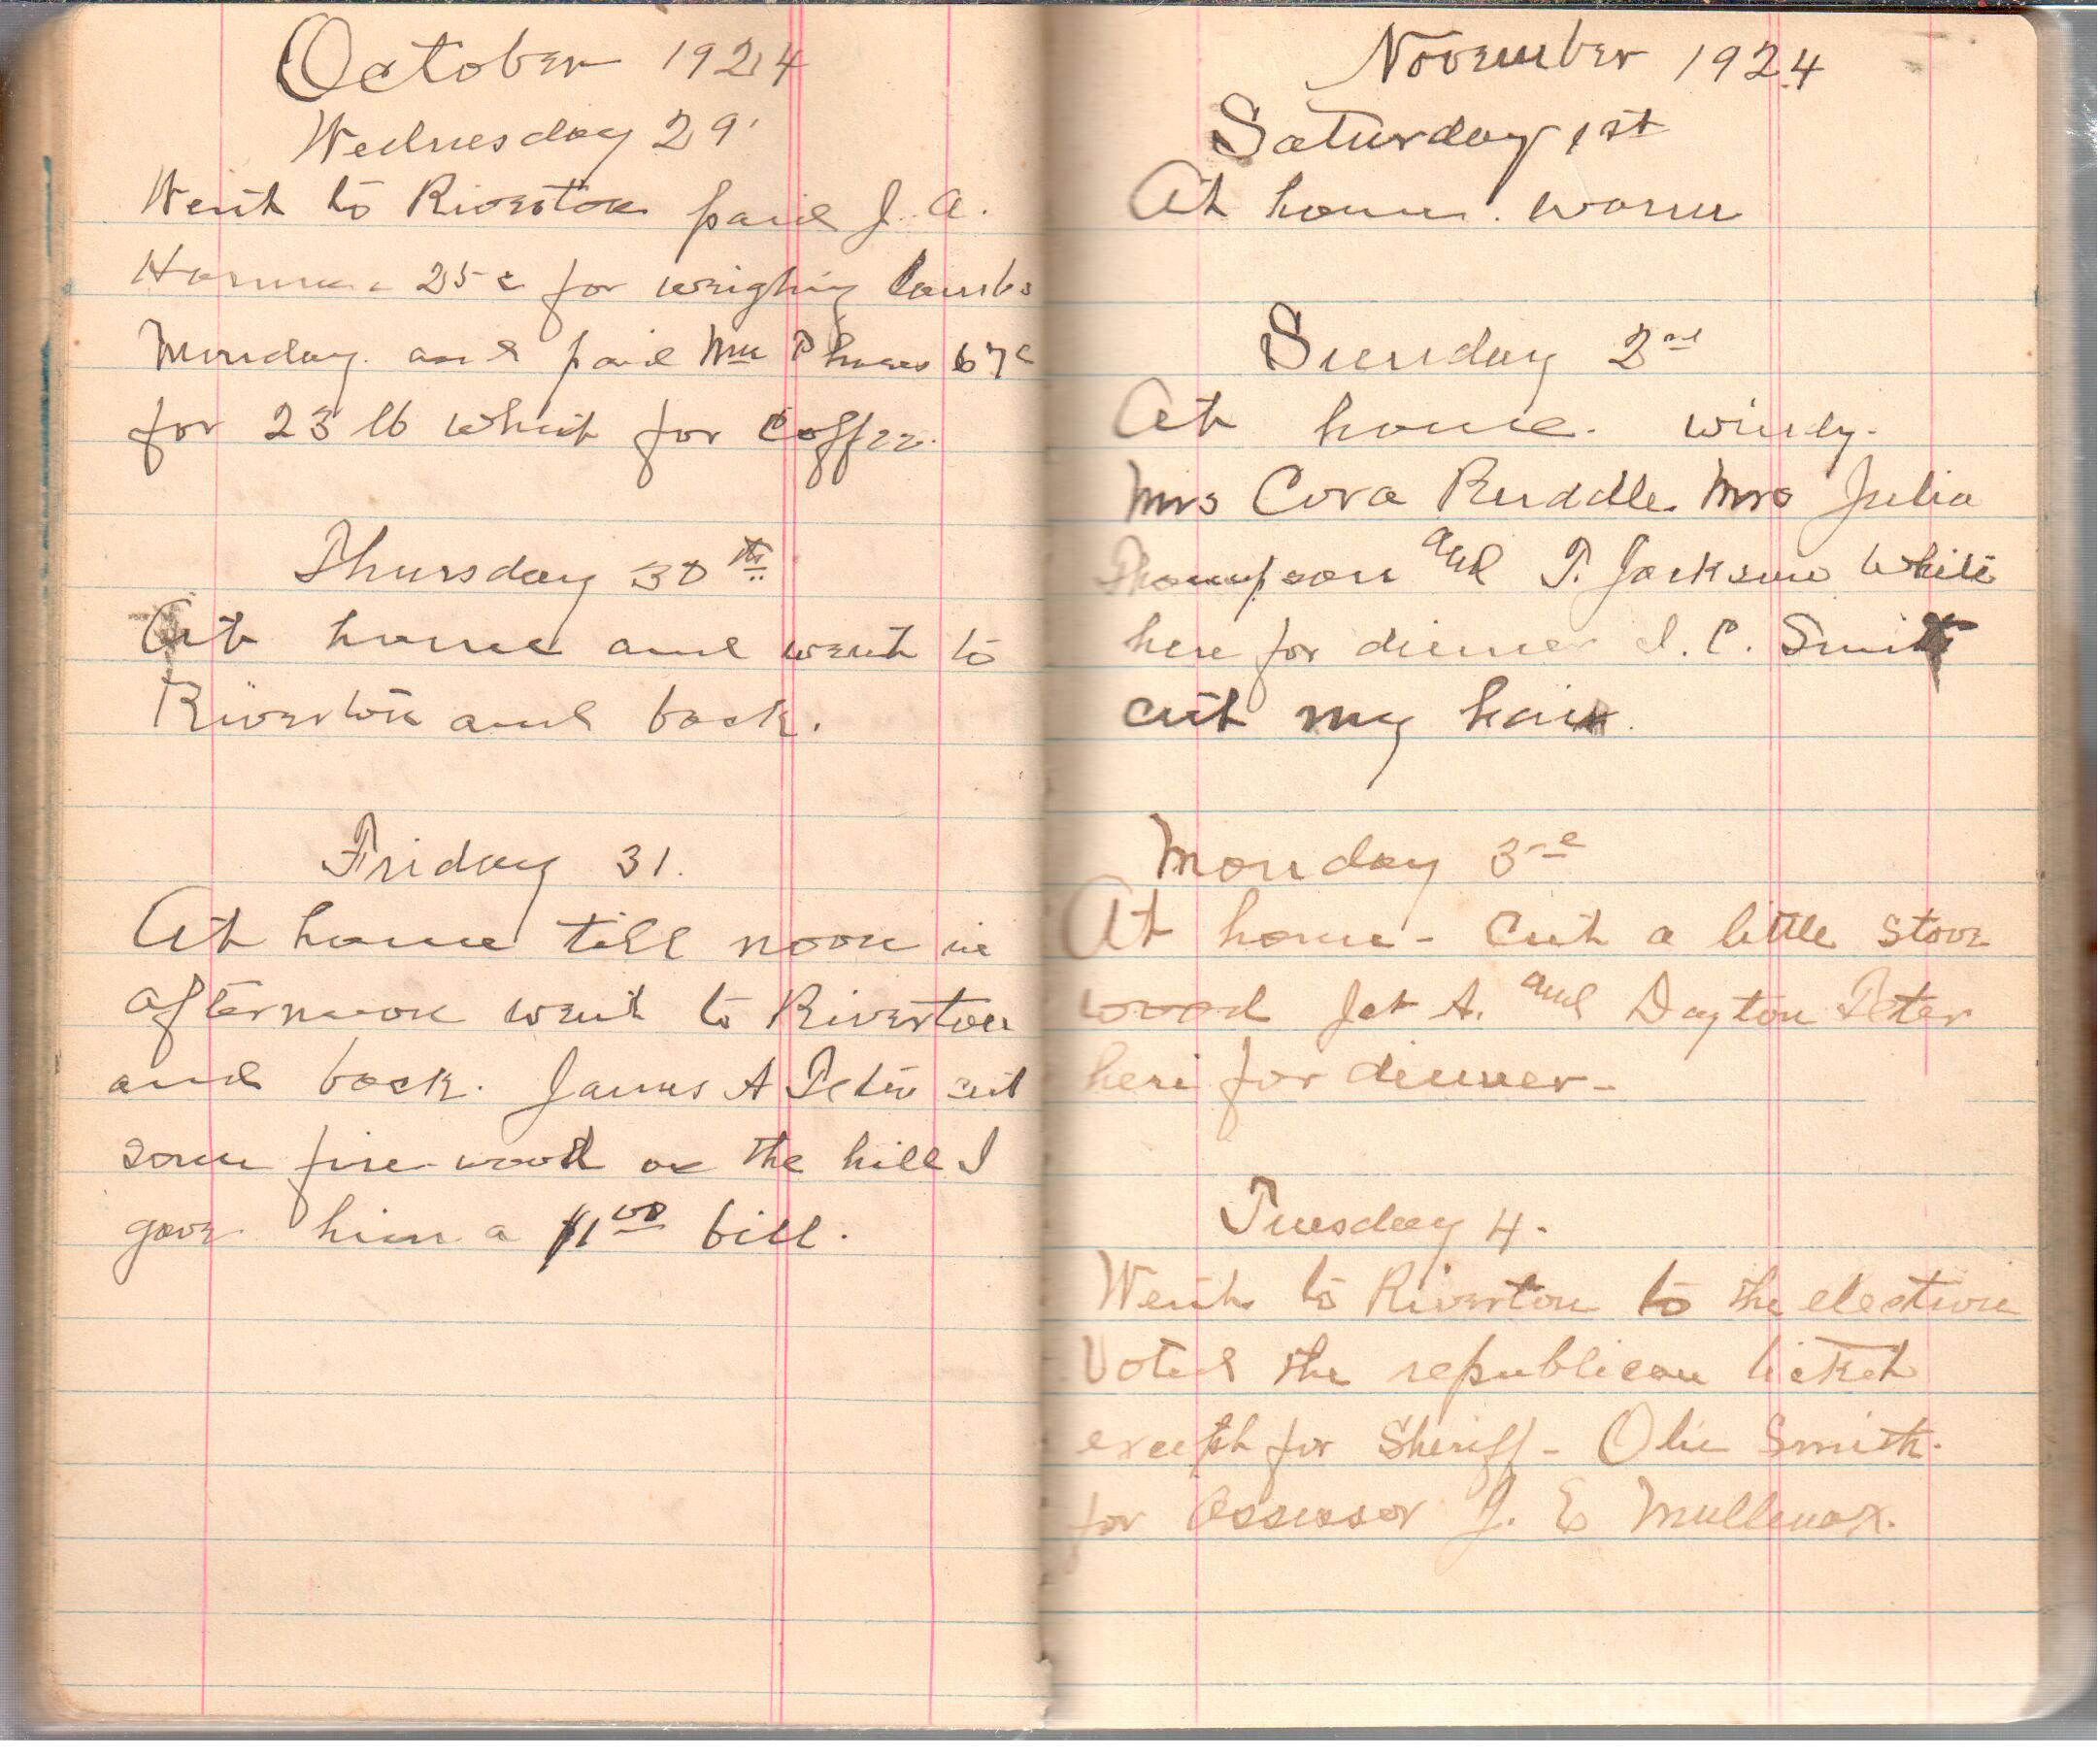 October 1924
Wednesday 29
Went to Riverton paid J. A.
Harman 25¢ for weighing lambs
Monday. and paid Wm 67¢
for 23 lb wheat for Coffee.
Thursday 30th
At home and went to
Riverton and back.
Friday 31.
At home till noon in
afternoon went to Riverton
and back. James A Teter cut
some fire-wood on the hill I
gave him a $1.00 bill.
November 1924
Saturday 1st
At home. warm
Sunday 2nd
At home. windy.
Mrs Cora Ruddle. Mrs Julia
Thompson and T. Jackson White
here for dinner I. C. Smith
cut my hair.
Monday 3rd
At home - Cut a little stove
wood Jet A. and Dayton Teter
here for dinner -
Tuesday 4.
Went to Riverton to the election
Voted the republican ticket
except for Sheriff - Olie Smith.
for Assessor J. E Mullenax.